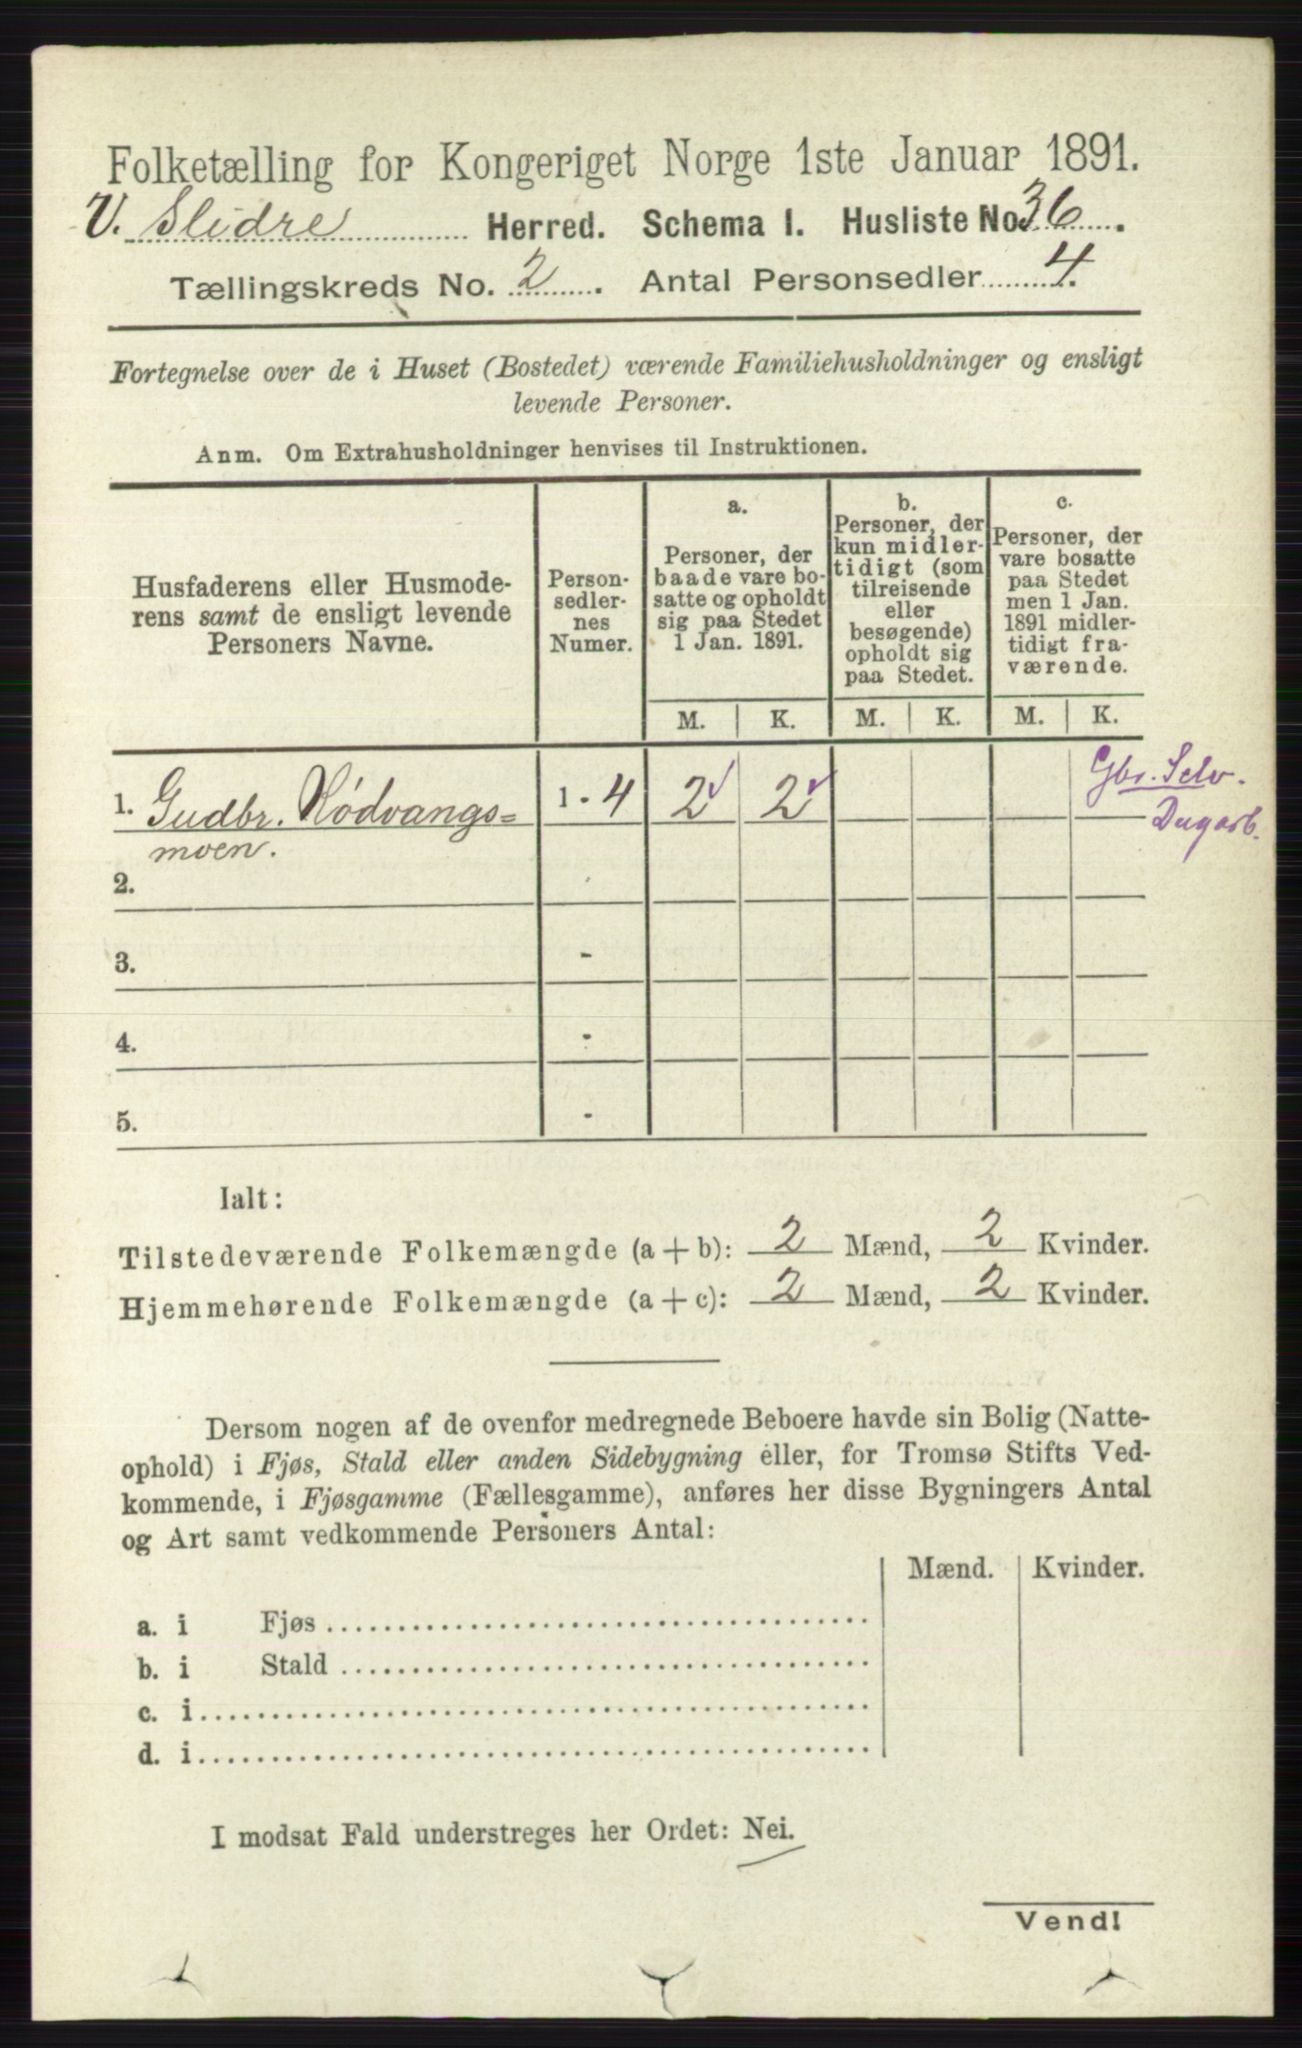 Folketælling for Kongeriget Norge 1ste Januar 1891.
V. Slidre Herred. Schema I. Husliste No. 36.
Tællingskreds No. 2. Antal Personsedler 4.
Fortegnelse over de i Huset (Bostedet) værende Familiehusholdninger og ensligt
levende Personer.
Anm. Om Extrahusholdninger henvises til Instruktionen.
Husfaderens eller Husmode-
rens samt de ensligt levende
Personers Navne.
Person-
sedler-
nes
Numer.
a.
Personer, der
baade vare bo-
satte og opholdt
sig paa Stedet
1 Jan. 1891.
b.
Personer, der
kun midler-
tidigt (som
tilreisende
eller
besøgende)
opholdt sig
paa Stedet.
c.
Personer, der
vare bosatte
paa Stedet
men 1 Jan.
1891 midler-
tidigt fra-
værende.
M. K. M. K. M. K.
1. Gudbr. Rødvangs= 1 - 4 2 2 Gbr. Selv.
moen. Dagarb.
2.
3. -
4. -
5. -
Ialt:
Tilstedeværende Folkemængde (a + b): 2 Mænd, 2 Kvinder.
Hjemmehørende Folkemængde (a + c): 2 Mænd, 2 Kvinder.
Dersom nogen af de ovenfor medregnede Beboere havde sin Bolig (Natte-
ophold) i Fjøs, Stald eller anden Sidebygning eller, for Tromsø Stifts Ved-
kommende, i Fjøsgamme (Fællesgamme), anføres her disse Bygningers Antal
og Art samt vedkommende Personers Antal:
Mænd. Kvinder.
a. i Fjøs
b. i Stald
c. i
d. i
I modsat Fald understreges her Ordet: Nei.
Vend!